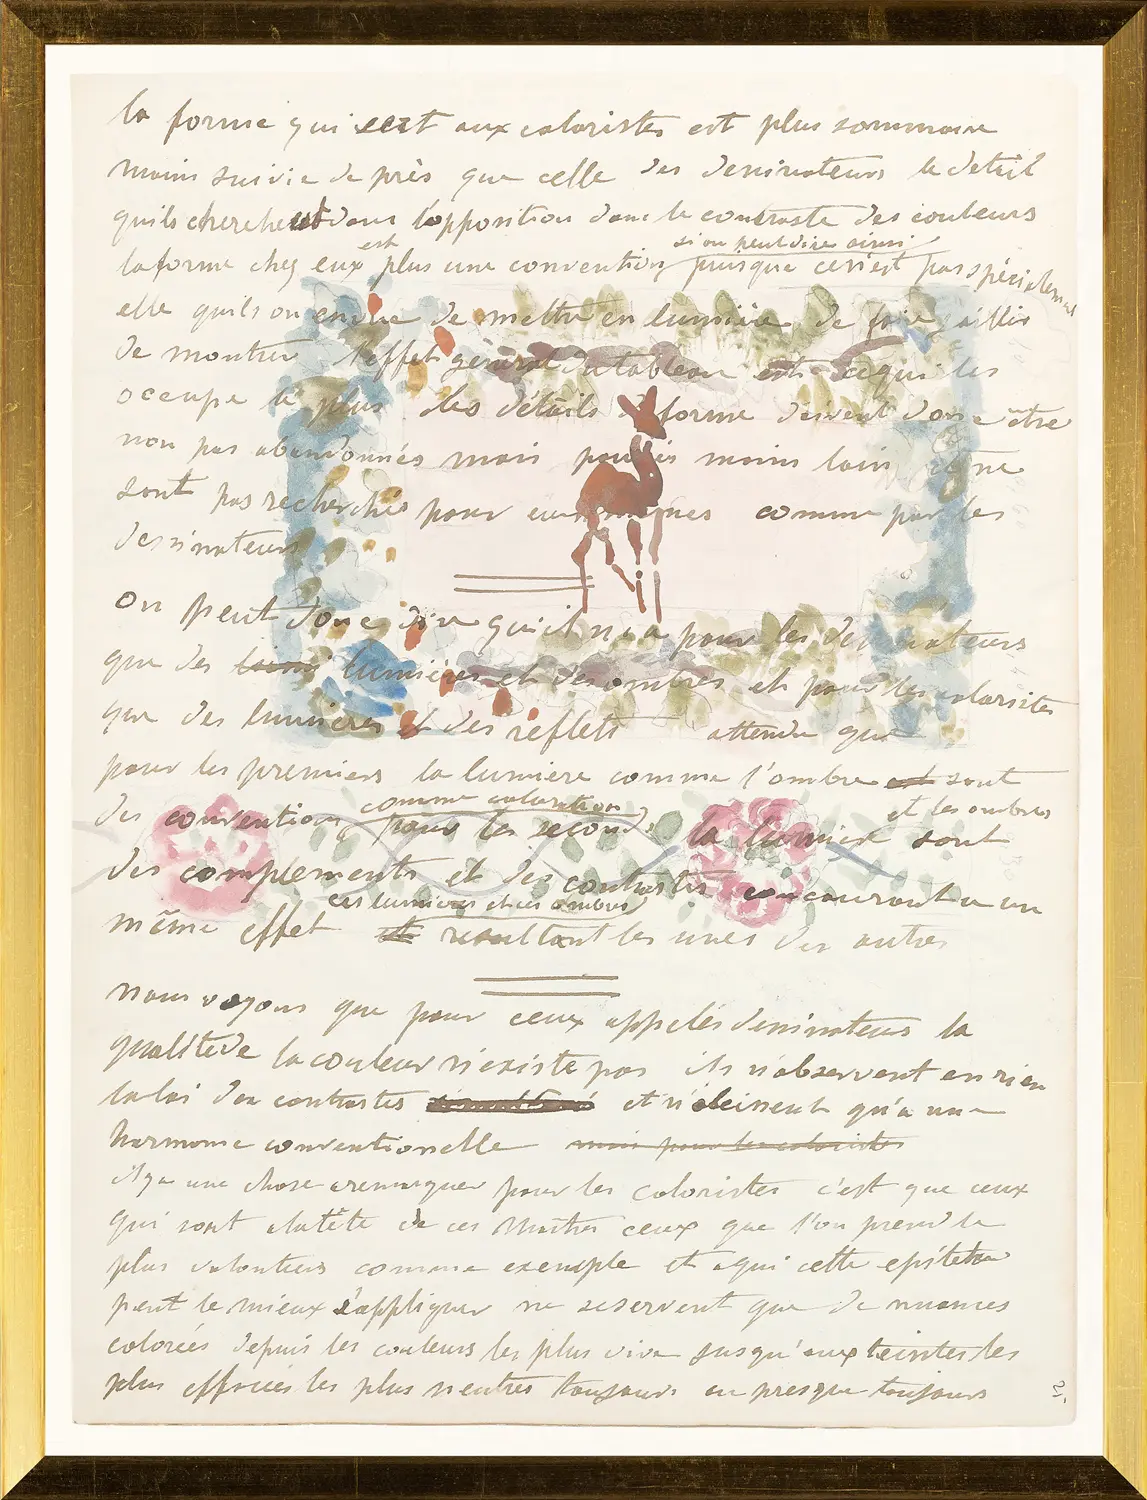 la forme qui sert aux coloristes est plus sommaire
moins suivie de près que celle des dessinateurs le detail
quils cherchent dans l'opposition dans le contraste des couleurs
est si on peut dire ainsi
la forme chez eux plus une convention puisque ce n'est pas spécialement
elle quils on envie de mettre en lumière de faire saillir
de montrer l'effet géneral du tableau est ce qui les
occupe le plus les détails de forme doivent donc être
non pas abandonnés mais poussés moins loin et ne
sont pas recherchés pour eux mêmes comme par les
dessinateurs
on peut donc dire qu'il n'y a pour les dessinateurs
que des lumières et des ombres et pour les coloristes
que des lumieres et des reflets attendu que
pour les premiers la lumière comme l'ombre est sont
comme coloration et les ombres
des conventions pour les second la lumière sont
des complements et des contrastes concourant a un
ces lumieres et ces ombres
même effet et resultant les unes des autres
nous voyons que pour ceux appelés dessinateurs la
qualité de la couleur n'existe pas ils n'observent en rien
la loi des contrastes et n'obeissent qu'a une
harmonie conventionelle mais pour les coloristes
il y a une chose a remarquer pour les coloristes c'est que ceux
qui sont a la tête de ces maitres ceux que l'on prend le
plus volontiers comme exemple et a qui cette epitete
peut le mieux s'appliquer ne se servent que de nuances
colorées depuis les couleurs les plus vives jusqu'aux teintes les
plus effacées les plus neutres toujours ou presque toujours